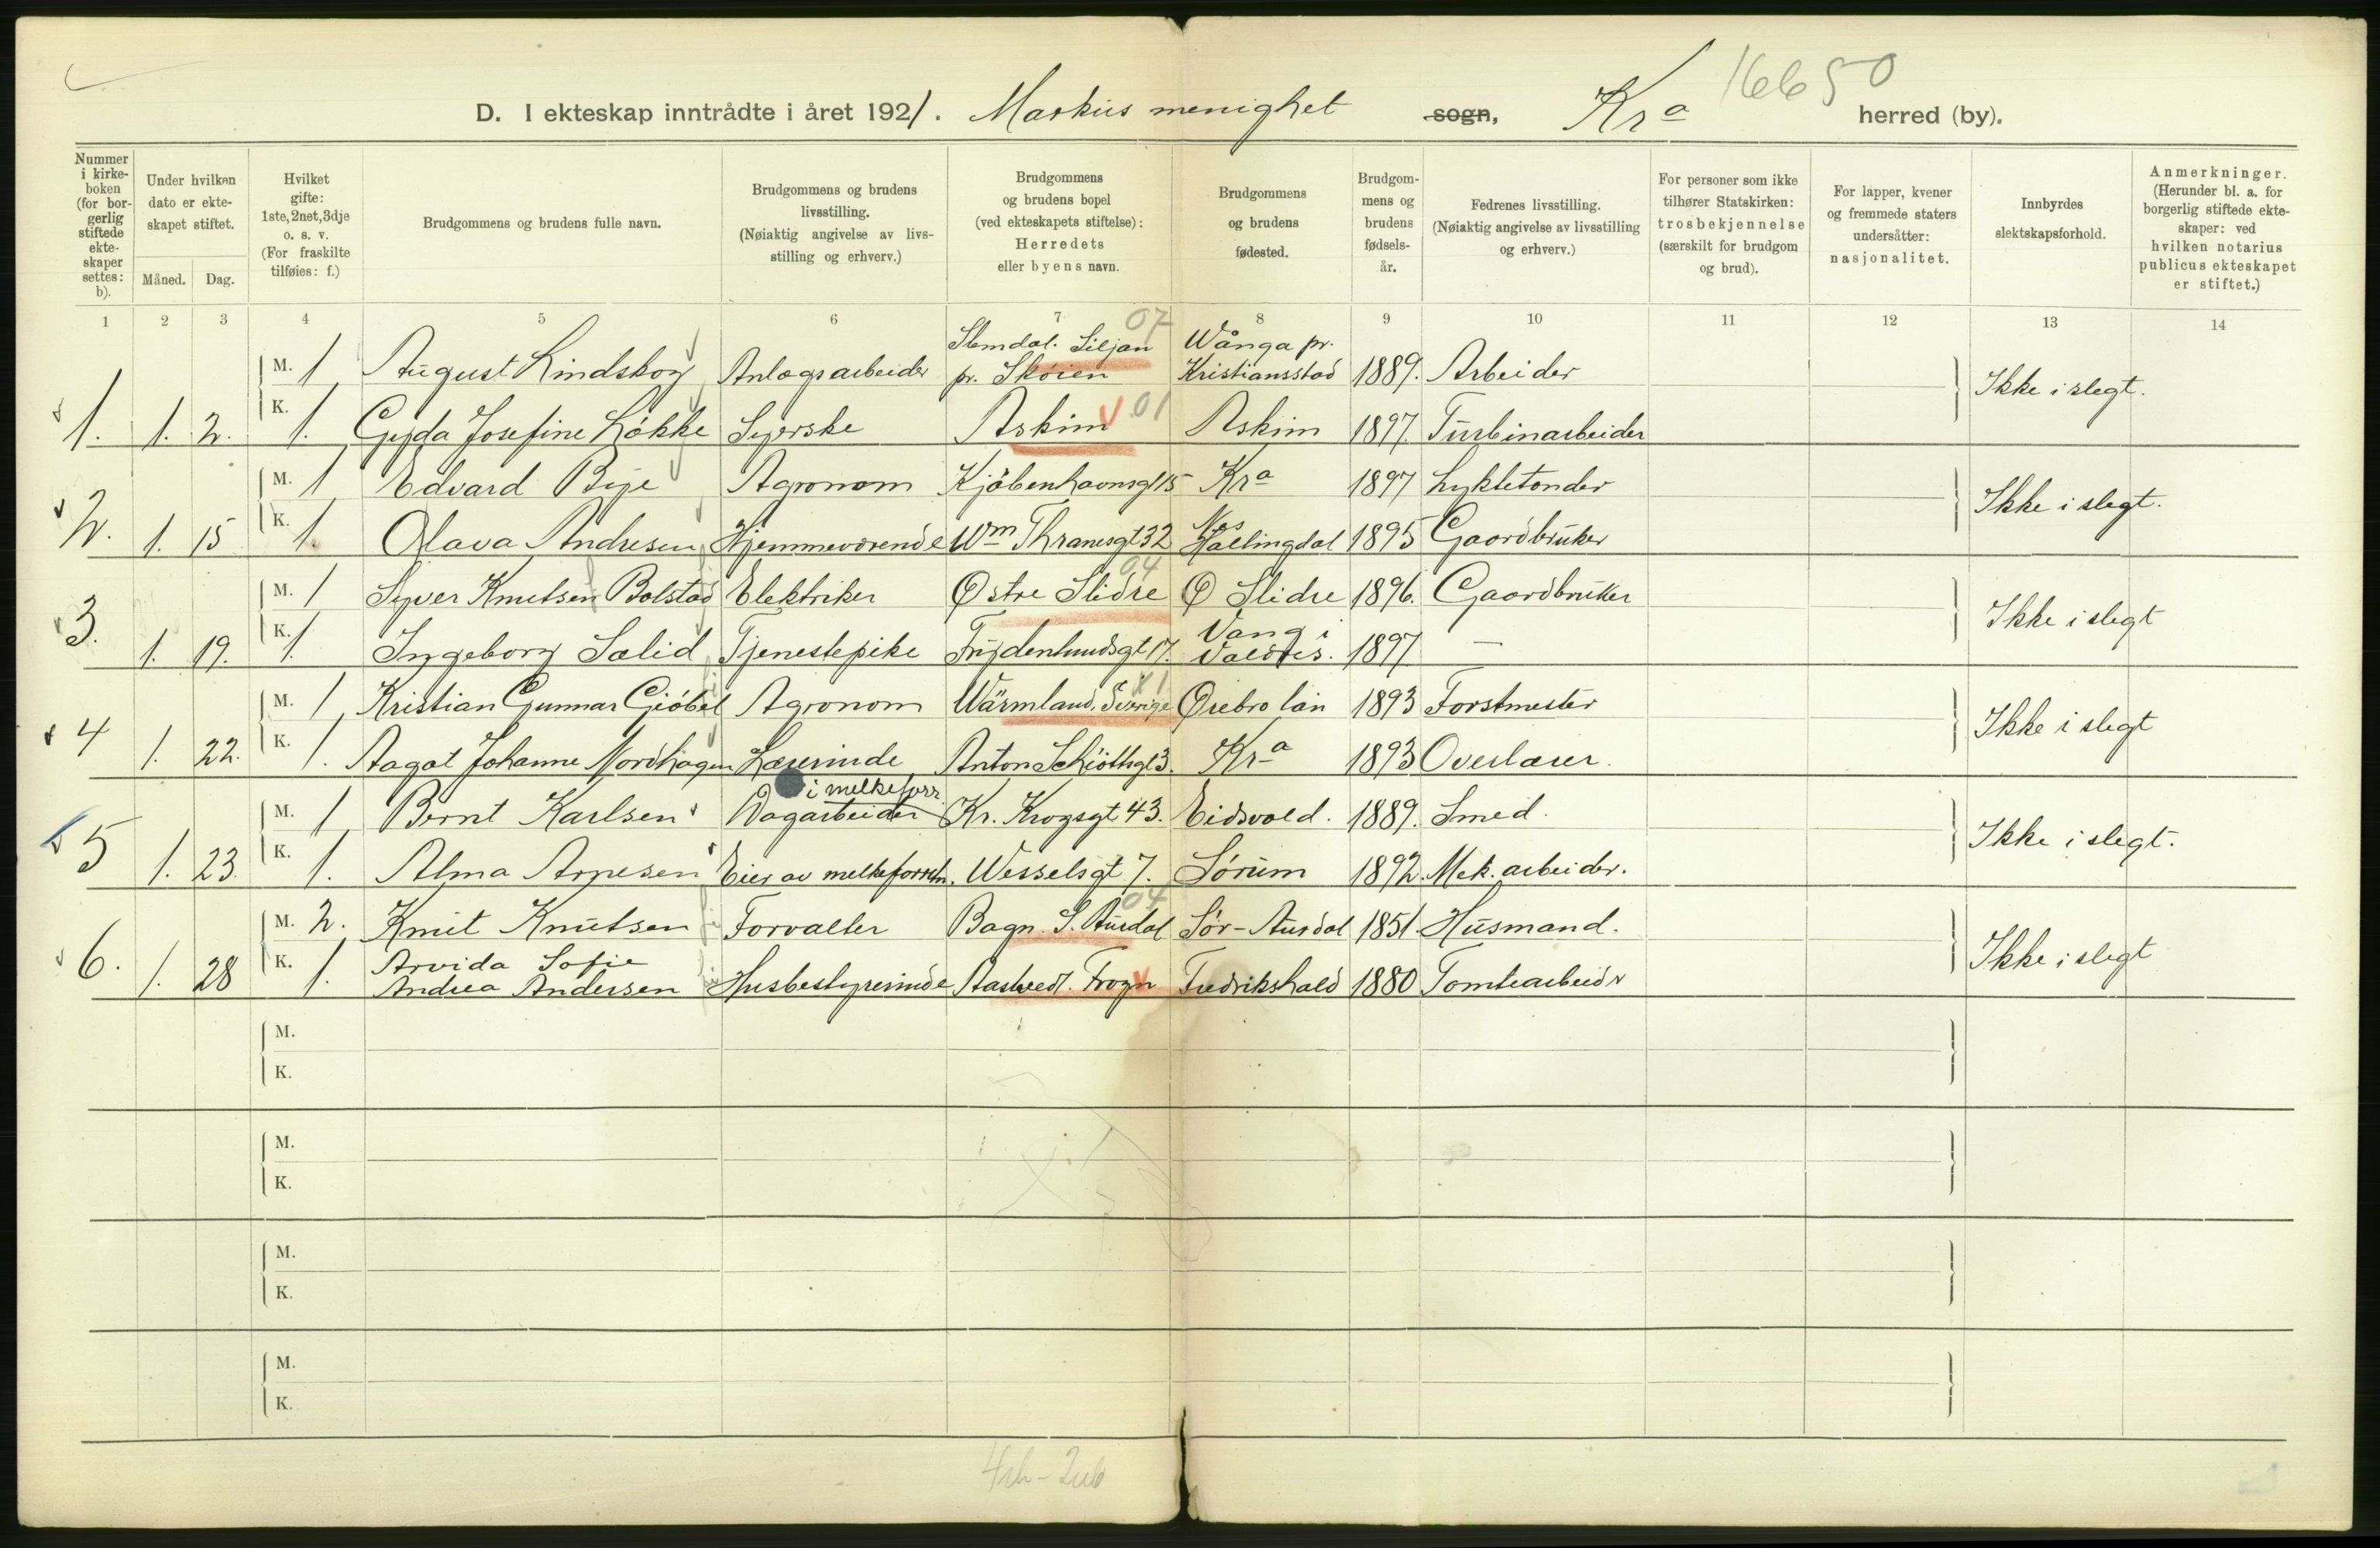 16650
D. I ekteskap inntrådte i året 1921. Markus menighet sogn, Kra herred (by).
Nummer i kirkeboken (for borgerlig stiftede ekteskaper settes: b).
Under hvilken dato er ekteskapet stiftet.
Måned. Dag.
Hvilket gifte: 1ste, 2net, 3dje o. s. v. (For fraskilte tilføies: f.)
Brudgommens og brudens fulle navn.
Brudgommens og brudens livsstilling. (Nøiaktig angivelse av livsstilling og erhverv.)
Brudgommens og brudens bopel (ved ekteskapets stiftelse): Herredets eller byens navn.
Brudgommens og brudens fødested.
Brudgommens og brudens fødselsår.
Fedrenes livsstilling. (Nøiaktig angivelse av livsstilling og erhverv.)
For personer som ikke tilhører Statskirken: trosbekjennelse (særskilt for brudgom og brud).
For lapper, kvener og fremmede staters undersåtter: nasjonalitet.
Innbyrdes slektskapsforhold.
Anmerkninger. (Herunder bl. a. for borgerlig stiftede ekteskaper: ved hvilken notarius publicus ekteskapet er stiftet.)
1 2 3 4 5 6 7 8 9 10 11 12 13 14
07
M. 1 August Lindskog Anlægsarbeider Slemdal. Siljan pr. Skøien Wånga pr. Kristiansstad 1889. Arbeider Ikke i slegt.
1. 1. 2. K. 1. Gyda Josefine Løkke Syerske Askim 01 Askim 1897. Turbinarbeider
M. 1 Edvard Bye Agronom Kjøbenhavnsgt 15 Kra 1897 Lyktetænder Ikke i slegt.
2. 1. 15 K. 1. Olava Andresen Hjemmeværende Wm Thranesgt 32 Nes Hallingdal 1895 Gaardbruker
04
M. 1 Syver Knutsen Bolstad Elektriker Østre Slidre Ø Slidre 1896. Gaardbruker Ikke i slegt
3. 1. 19. K. 1. Ingeborg Sælid Tjenestepike Frydenlundsgt 17. Vang i Valdres. 1897 —
M. 1 Kristian Gunnar Giöbel Agronom Wärmland, Sverige Ørebro län 1893 Forstmester Ikke i slegt
4 1. 22. K. 1. Aagot Johanne Nordhagen Lærerinde Anton Schiøthsgt 3. Kra 1893 Overlærer.
i melkeforr.
M. 1 Bernt Karlsen Dagarbeider Kr. Krogsgt 43. Eidsvold. 1889. Smed. Ikke i slegt.
5 1. 23. K. 1. Alma Arnesen Eier av melkeforretn. Wesselsgt 7. Sørum 1892. Mek. arbeider.
04
M. 2. Knut Knutsen Forvalter Bagn. S. Aurdal Sør-Aurdal 1851. Husmand. Ikke i slegt
6. 1. 28 K. 1. Arvida Sofie Andrea Andersen Husbestyrerinde Frogn Fredrikshald 1880 Tomtearbeider
M.
K.
M.
K.
M.
K.
M.
K.